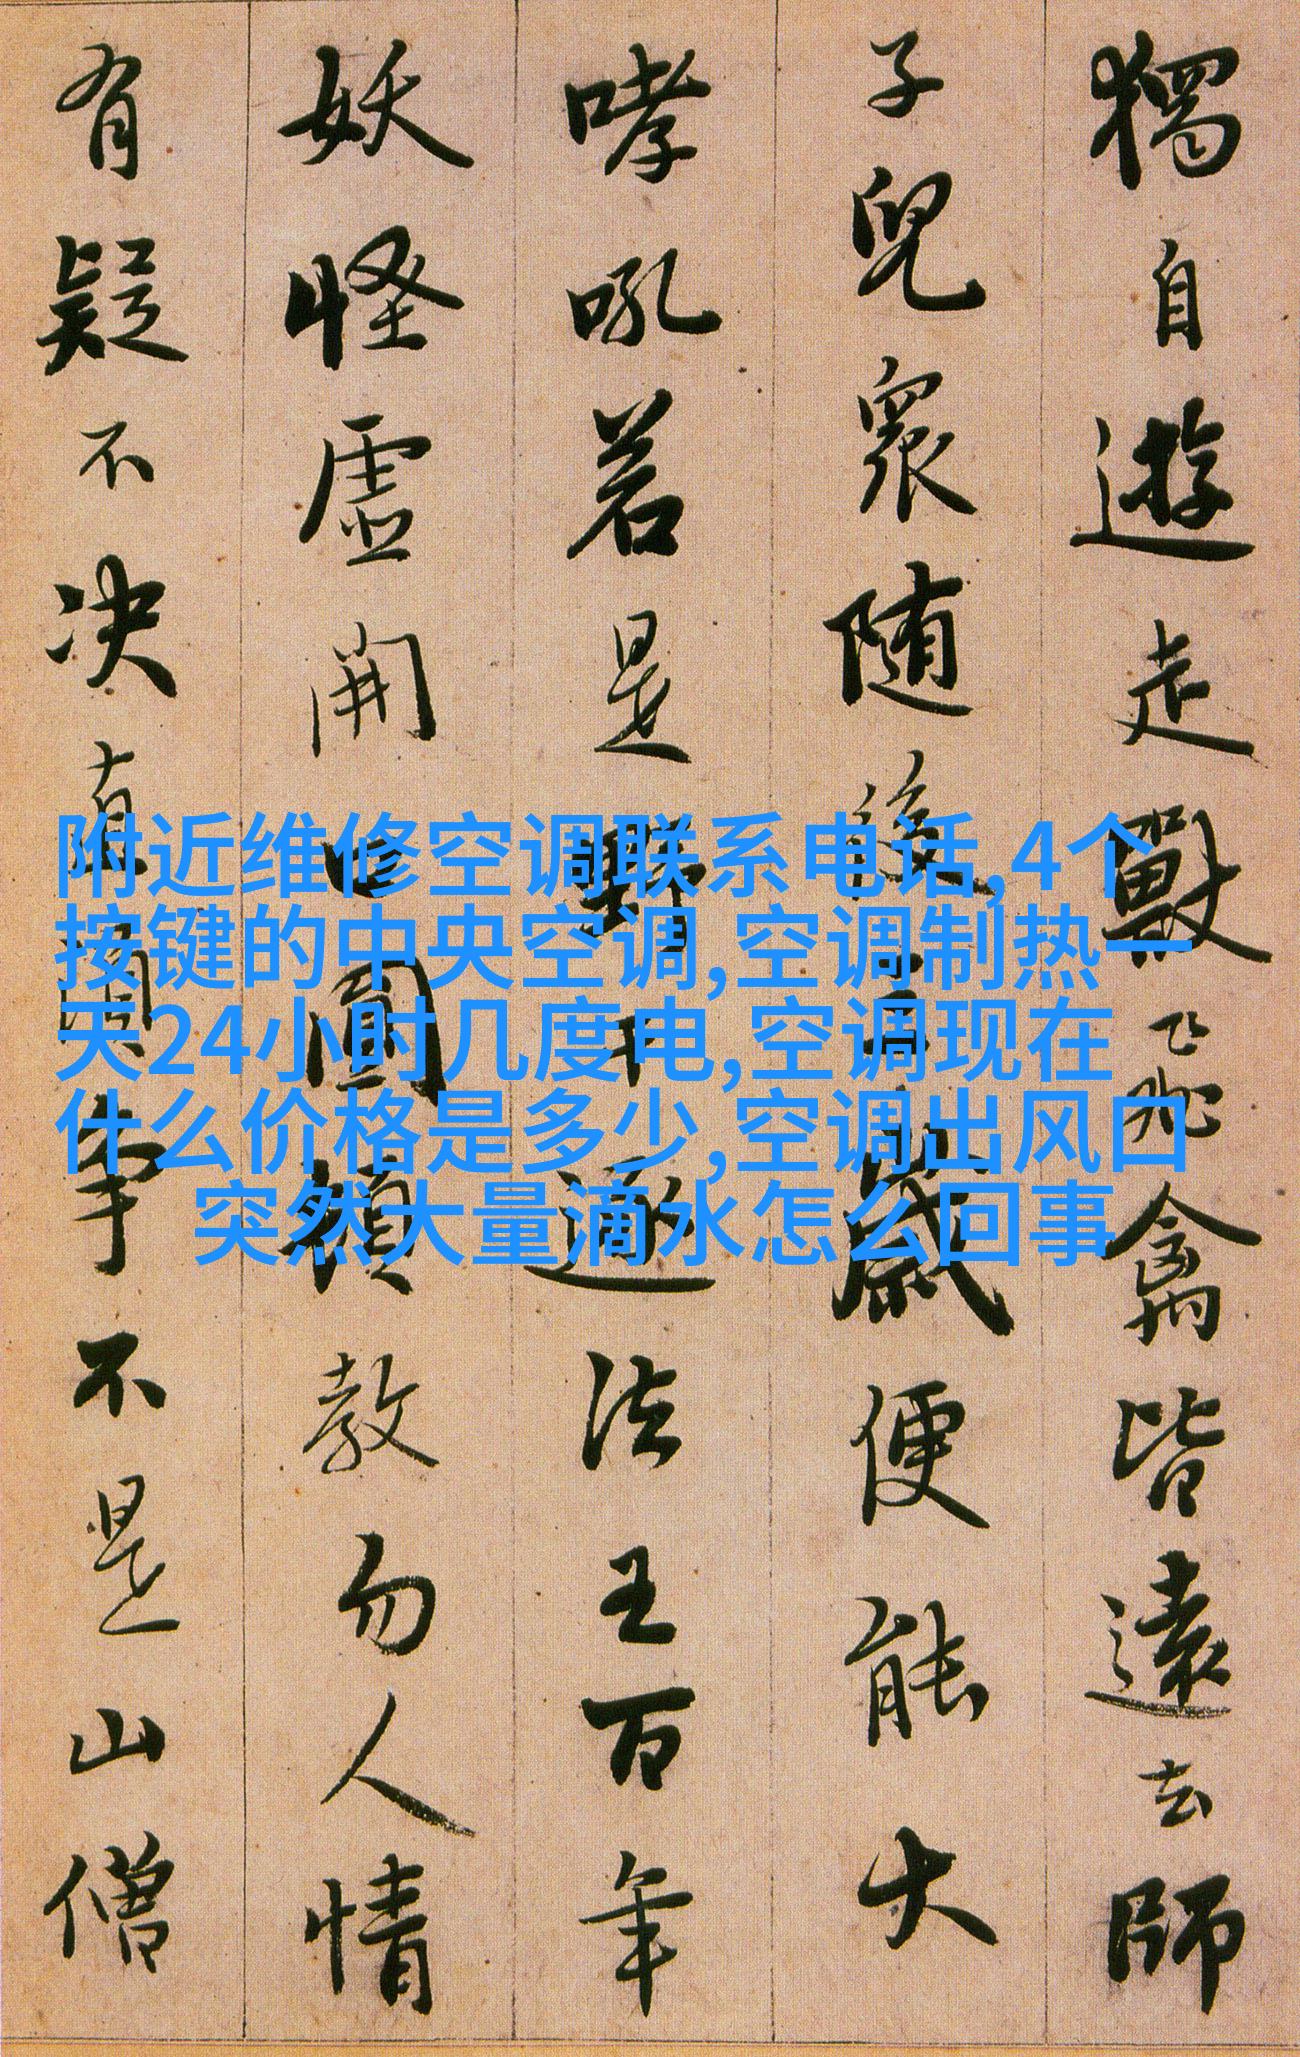 獨自遊走獸飛禽皆遠去師
子兒眾隨後三歲便能大
哮吼若是野干逐法王百年
妖怪虛開口圓頓教勿人情
有疑不决直須爭不是山僧
附近维修空调联系电话,4个
按键的中央空调,空调制热一
天24小时几度电,空调现在
什么价格是多少,空调出风口
突然大量滴水怎么回事